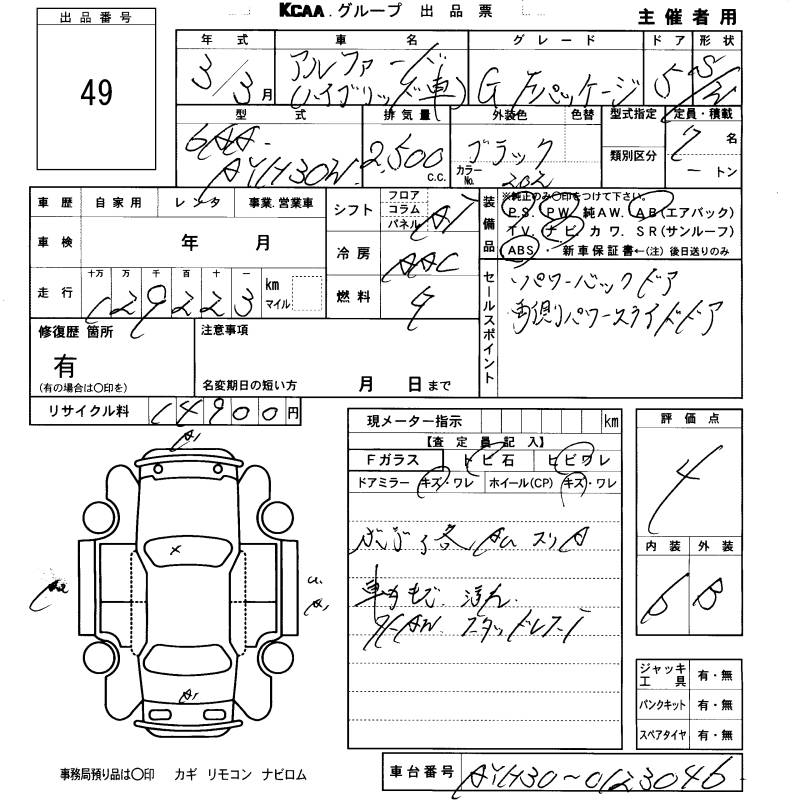 KCAA グループ 出品票
主催者用
出品番号
49
年式 車名 グレード ドア 形状
3/3月 アルファード (ハイブリッド車) G Fパッケージ 5 S/W
型式 排気量 外装色 色替 型式指定 定員・積載
6AA- AYH30W 2,500 C.C. ブラック カラーNo. 202 類別区分 7名 ートン
車歴 自家用 レンタ 事業.営業車
シフト フロア コラム パネル AT
装備品 ※純正のみ〇印をつけて下さい。
PS. PW. 純AW. AB(エアバック)
TV. ナビ カワ. SR(サンルーフ)
ABS・新車保証書←(注) 後日送りのみ
車検 年 月
冷房 AAC
走行 十万 万 千 百 十 一
129223 km マイル
燃料
セールスポイント
パワーバックドア
両側パワースライドドア
修復歴 箇所
有
(有の場合は〇印を)
注意事項
名変期日の短い方 月 日まで
リサイクル料 14900円
現メーター指示 km
【査定員記入】
Fガラス トビ石 ヒビワレ
ドアミラー キズ・ワレ ホイール(CP) キズ・ワレ
各 AU スリA
評価点
4
内装 外装
B B
A1
X
A2
U.
A1
A1
スタッドレス
ジャッキ工具 有・無
パンクキット 有・無
スペアタイヤ 有・無
事務局預り品は〇印 カギ リモコン ナビロム
車台番号 AYH30~0123046